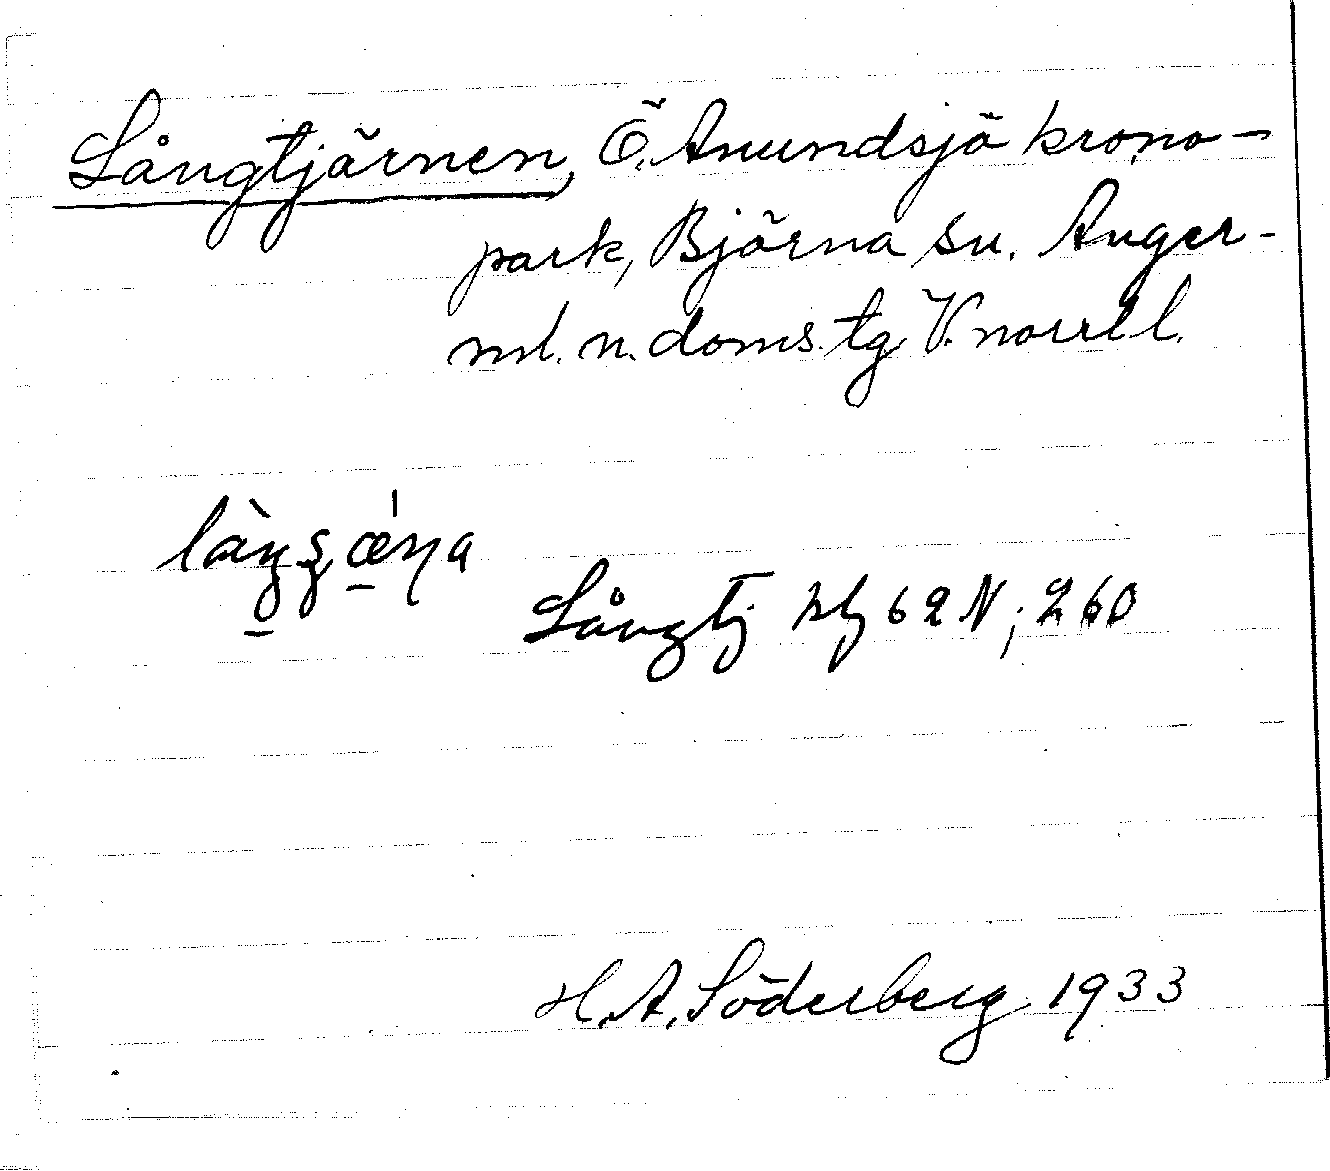 Långtjärnen, Ö. Anundsjö krono-
park, Björna sn. Ånger-
ml. n. doms. tg V. norrl l.
Långtj blg 62 N; 260
H. A. Söderberg 1933